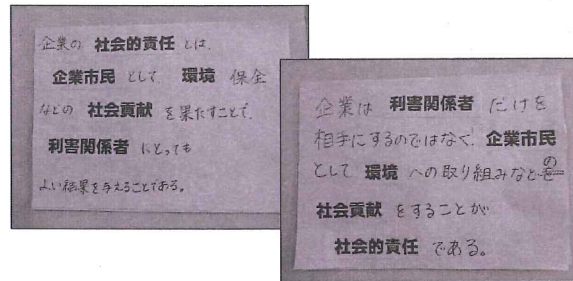 企業の 社会的責任 とは、
企業市民 として 環境 保全
などの 社会貢献 を果たすことで、
利害関係者 にとっても
よい結果を与えることである。
企業は 利害関係者 だけを
相手にするのではなく、企業市民
として 環境 への取り組みなどの
社会貢献 をすることが
社会的責任 である。